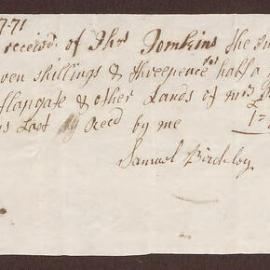 1771
received of Thos Tomkins the
seven shillings & threepence half a
Flapgate & other Lands of mrs
Last by Reed
by me
Samuel Birchley